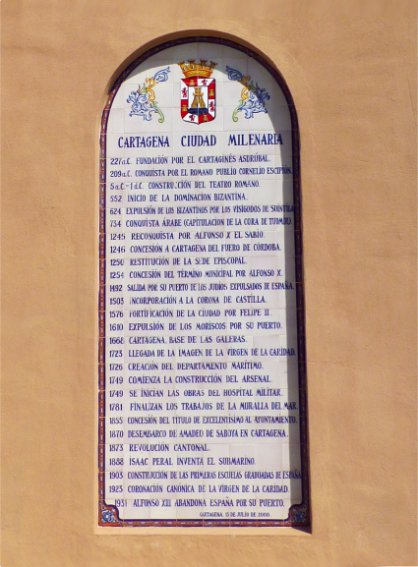 CARTAGENA CIUDAD MILENARIA
227a.C. FUNDACIÓN POR EL CARTAGINÉS ASDRÚBAL.
209a.C. CONQUISTA POR EL ROMANO PUBLIO CORNELIO ESCIPIÓN.
5a.C.-1d.C. CONSTRUCCIÓN DEL TEATRO ROMANO.
552 INICIO DE LA DOMINACION BIZANTINA.
624 EXPULSIÓN DE LOS BIZANTINOS POR LOS VISIGODOS DE SUINTILA.
734 CONQUISTA ÁRABE (CAPITULACION DE LA CORA DE TUDMIR).
1245 RECONQUISTA POR ALFONSO X EL SABIO.
1246 CONCESIÓN A CARTAGENA DEL FUERO DE CÓRDOBA.
1250 RESTITUCIÓN DE LA SEDE EPISCOPAL.
1254 CONCESIÓN DEL TÉRMINO MUNICIPAL POR ALFONSO X.
1492 SALIDA POR SU PUERTO DE LOS JUDIOS EXPULSADOS DE ESPAÑA.
1503 INCORPORACIÓN A LA CORONA DE CASTILLA.
1576 FORTIFICACIÓN DE LA CIUDAD POR FELIPE II.
1610 EXPULSIÓN DE LOS MORISCOS POR SU PUERTO.
1668 CARTAGENA, BASE DE LAS GALERAS.
1723 LLEGADA DE LA IMAGEN DE LA VIRGEN DE LA CARIDAD.
1726 CREACIÓN DEL DEPARTAMENTO MARÍTIMO.
1749 COMIENZA LA CONSTRUCCIÓN DEL ARSENAL.
1749 SE INICIAN LAS OBRAS DEL HOSPITAL MILITAR.
1781 FINALIZAN LOS TRABAJOS DE LA MURALLA DEL MAR.
1855 CONCESIÓN DEL TITULO DE EXCELENTÍSIMO AL AYUNTAMIENTO.
1870 DESEMBARCO DE AMADEO DE SABOYA EN CARTAGENA.
1873 REVOLUCIÓN CANTONAL.
1888 ISAAC PERAL INVENTA EL SUBMARINO.
1903 CONSTRUCCIÓN DE LAS PRIMERAS ESCUELAS GRADUADAS DE ESPAÑA.
1923 CORONACIÓN CANÓNICA DE LA VIRGEN DE LA CARIDAD.
1931 ALFONSO XIII ABANDONA ESPAÑA POR SU PUERTO.
CARTAGENA, 15 DE JULIO DE